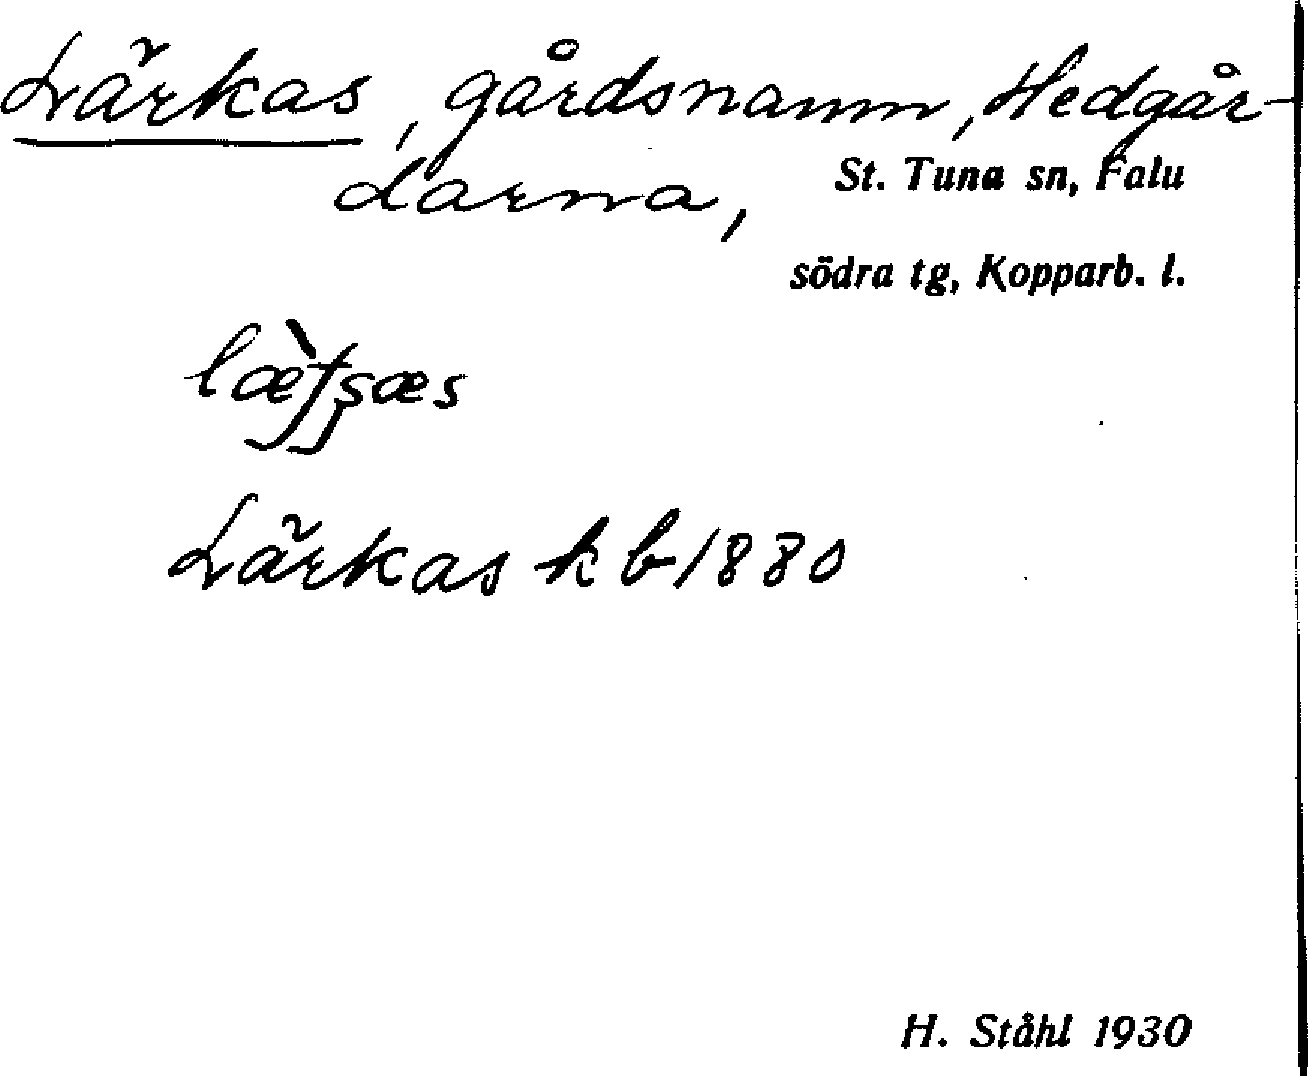 Lärkas, gårdsnamn, Hedgår-
darna,
St. Tuna sn, Falu
södra tg, Kopparb. l.
Lärkas kb 1880
H. Ståhl 1930